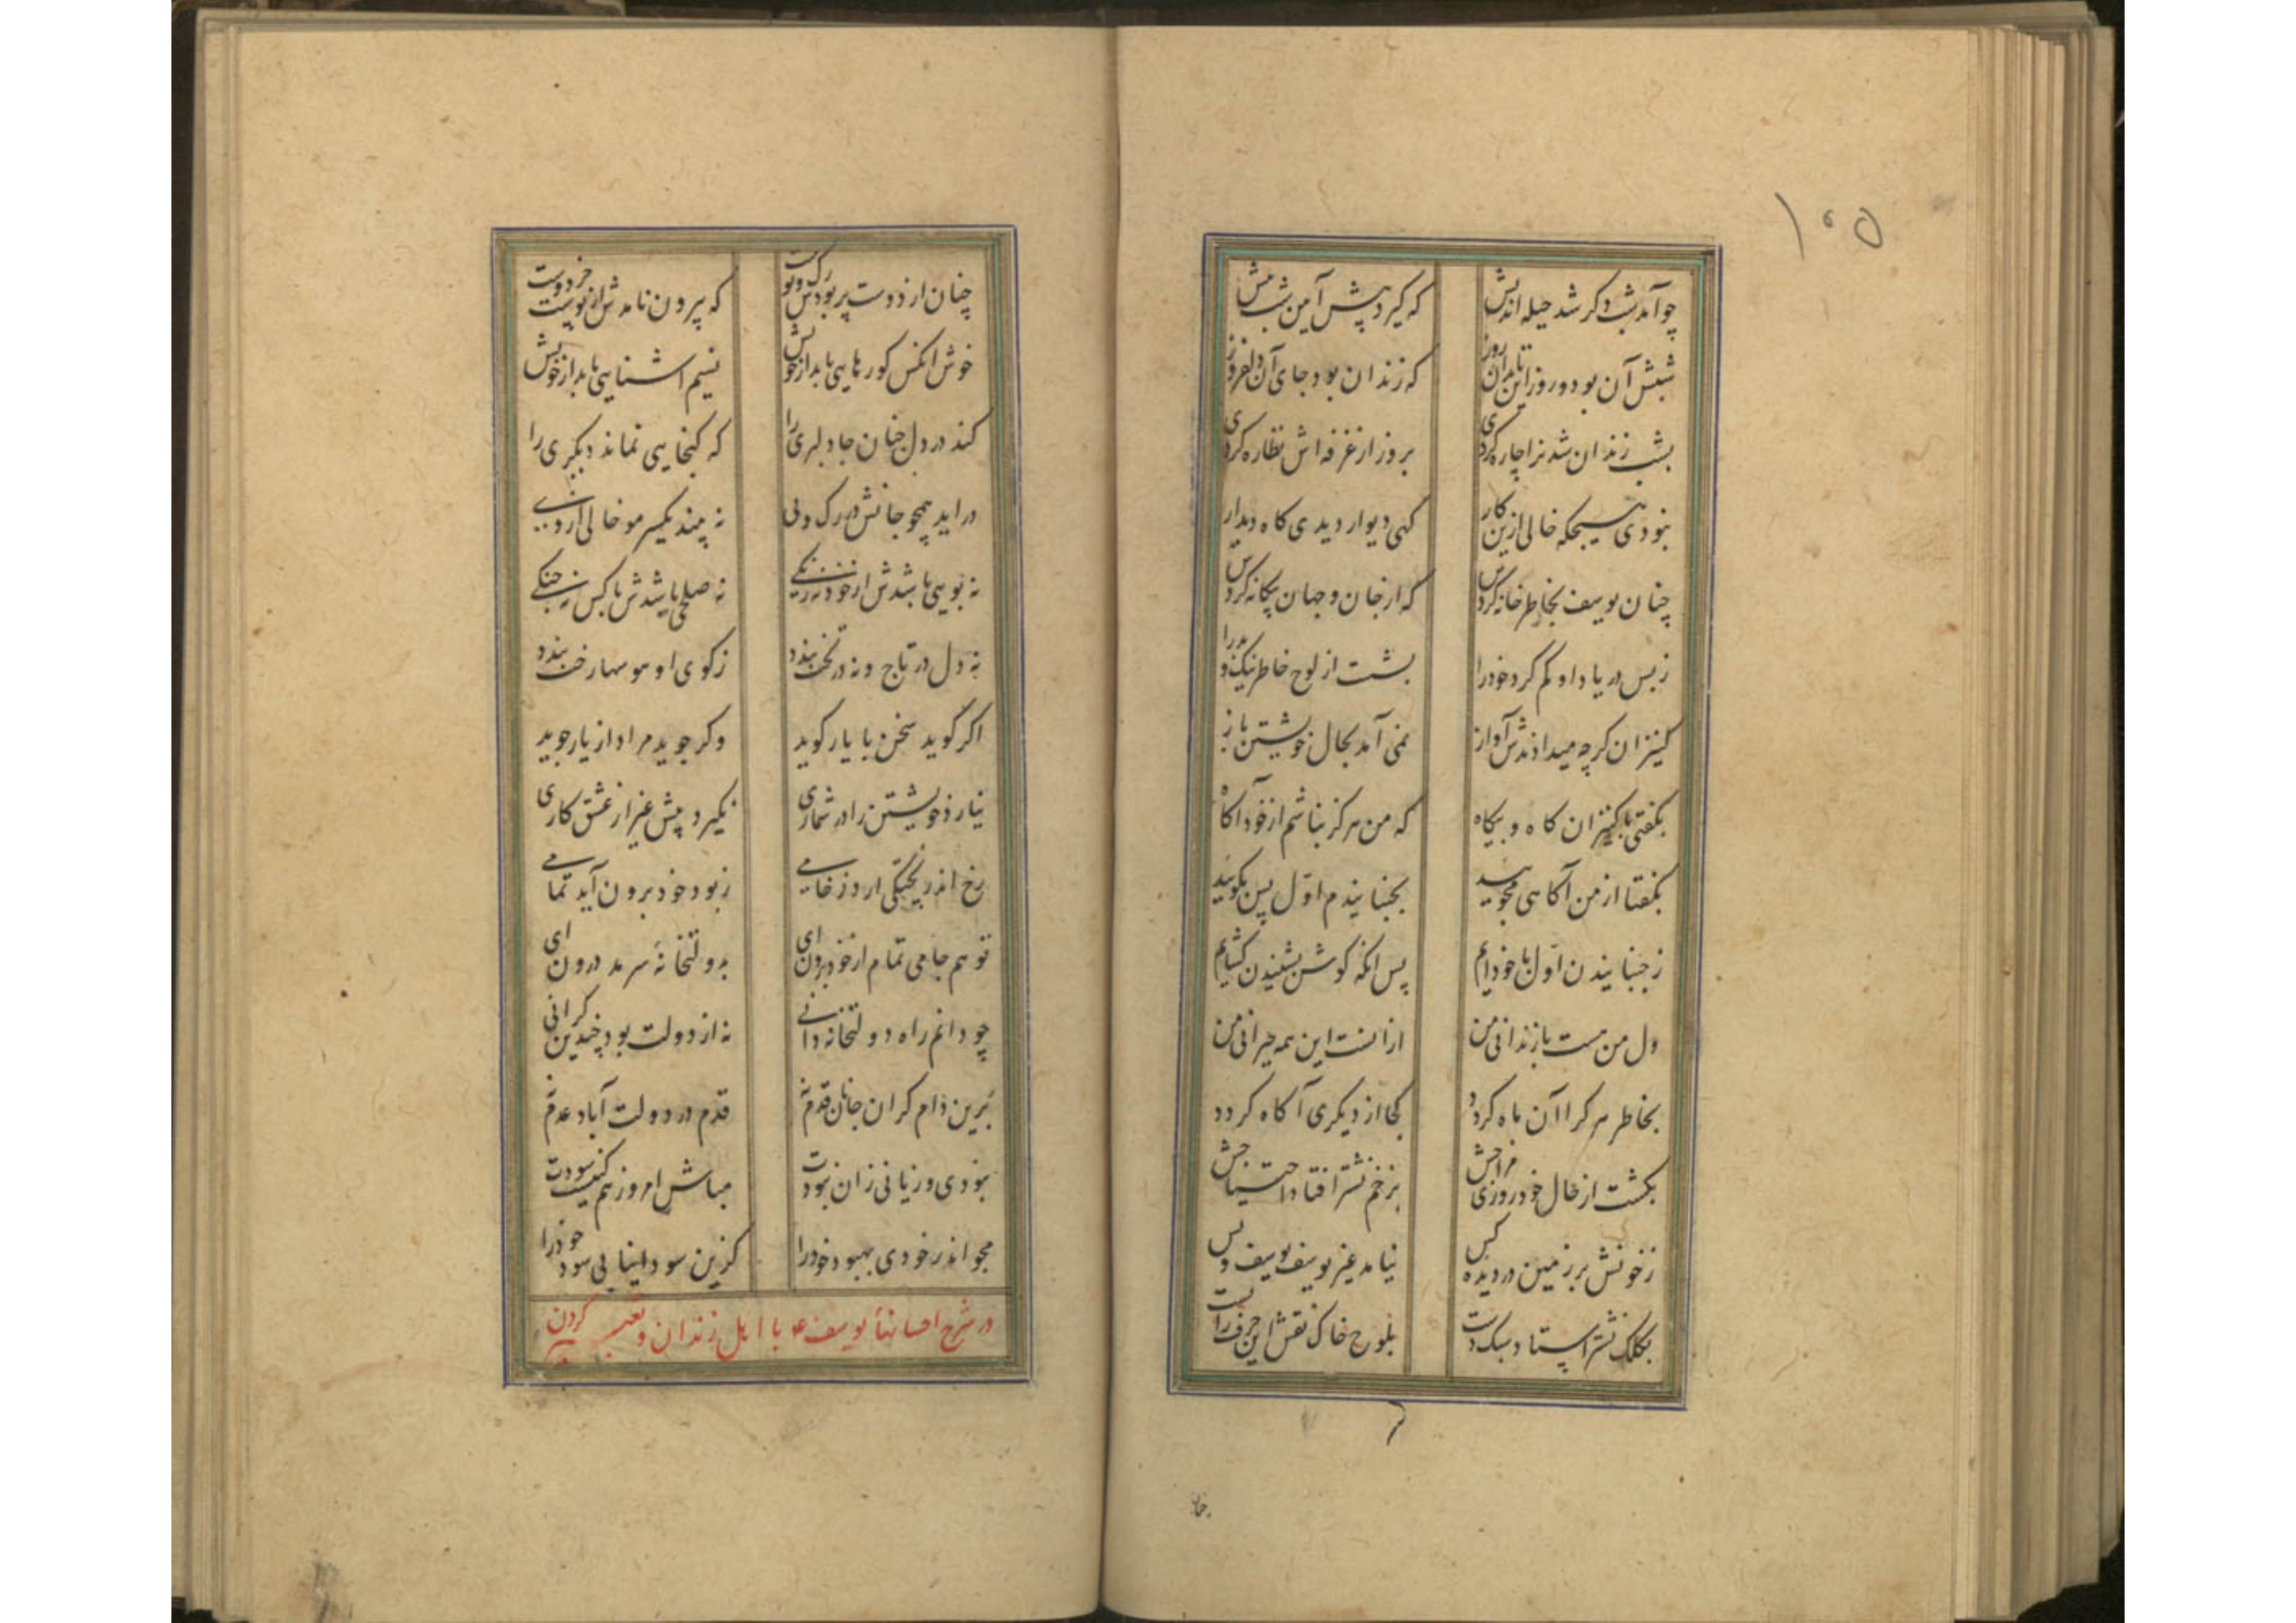 ۱۰۵
چو آمد شب دگر شد حیله اندیش که گیرد پیش آیین شب پیش
شبش آن بود و روز این تا بدان روز که زندان بود جای آن دلفروز
بشب زندان شدنرا چاره کردی بروز از غرفه اش نظاره کردی
نبودی هیچگه خالی ازین کار گهی دیوار دیدی گاه دیدار
چنان یوسف بخاطر خانه کردس که از جان و جهان بیگانه کردس
ز بس در یاد او گم کرد خود را بشست از لوح خاطر نیک و بد را
کنیزان گرچه میدادندش آواز نمی آمد بحال خویشتن باز
بگفتی با کنیزان گاه و بیگاه که من هرگز نباشم از خود آگاه
بگفتا از من آگاهی مجویید بجنبانیدم اول پس بگویید
ز جنبانیدن اول با خود آیم پس آنگه گوش بشنیدن گشایم
دل من هست با زندانی من ازانست این همه حیرانی من
بخاطر هر کرا آن ماه گردد کجا از دیگری آگاه گردد
بگشت از حال خود روزی مزاجش بزخم نشتر افتاد احتیاجش
ز خونش بر زمین در دیده کس نیامد غیر یوسف یوسف و بس
بکلک نشتر استاد سبک دست بلوح خاک نقش این حرف را بست
چنان از دوست پر بودش رگ و پوست که بیرون نامدش از پوست جز دوست
خوش آنکس کو رهایی یابد از خویش نسیم آشنایی یابد از خویش
کند در دل چنان جا دلبری را که گنجایی نماند دیگری را
در آید همچو جانش در رگ و پی نه بیند یکسر مو خالی از وی
نه بویی باشدش از خود نه رنگی نه صلحی باشدش با کس نه جنگی
نه دل در تاج و نه در تخت بندد ز کوی او هوسها رخت بندد
اگر گوید سخن با یار گوید وگر جوید مراد از یار جوید
نیارد خویشتن را در شماری نگیرد پیش غیر از عشق کاری
رخ اندر پختگی آرد ز خامی ز بود خود برون آید تمامی
تو هم جامی تمام از خود برون آی بدولتخانه سرمد درون آی
چو دانم راه دولتخانه دانی نه از دولت بود چندین گرانی
برین دام گران جانان قدم نه قدم در دولت آباد عدم نه
نبودی و زیانی زان نبودت مباش امروز هم کینست سودت
مجو اندر خودی بهبود خود را کزین سودا نیابی سود خود را
در شرح احسانهای یوسف ع با اهل زندان و تعبیر کردن